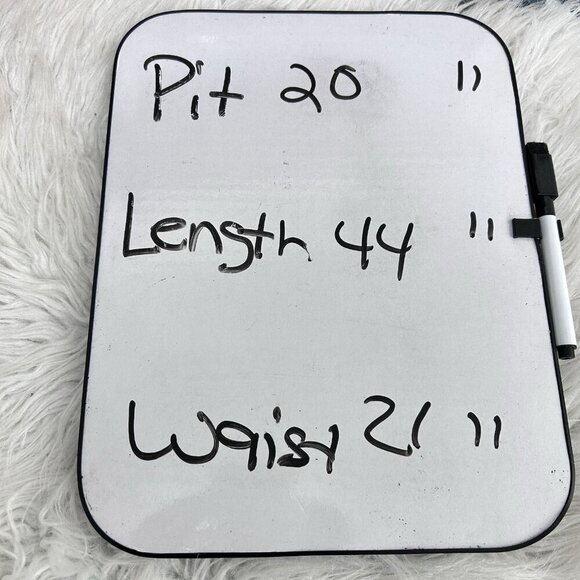 Pit 20 "
Length 44 "
Waist 21 "